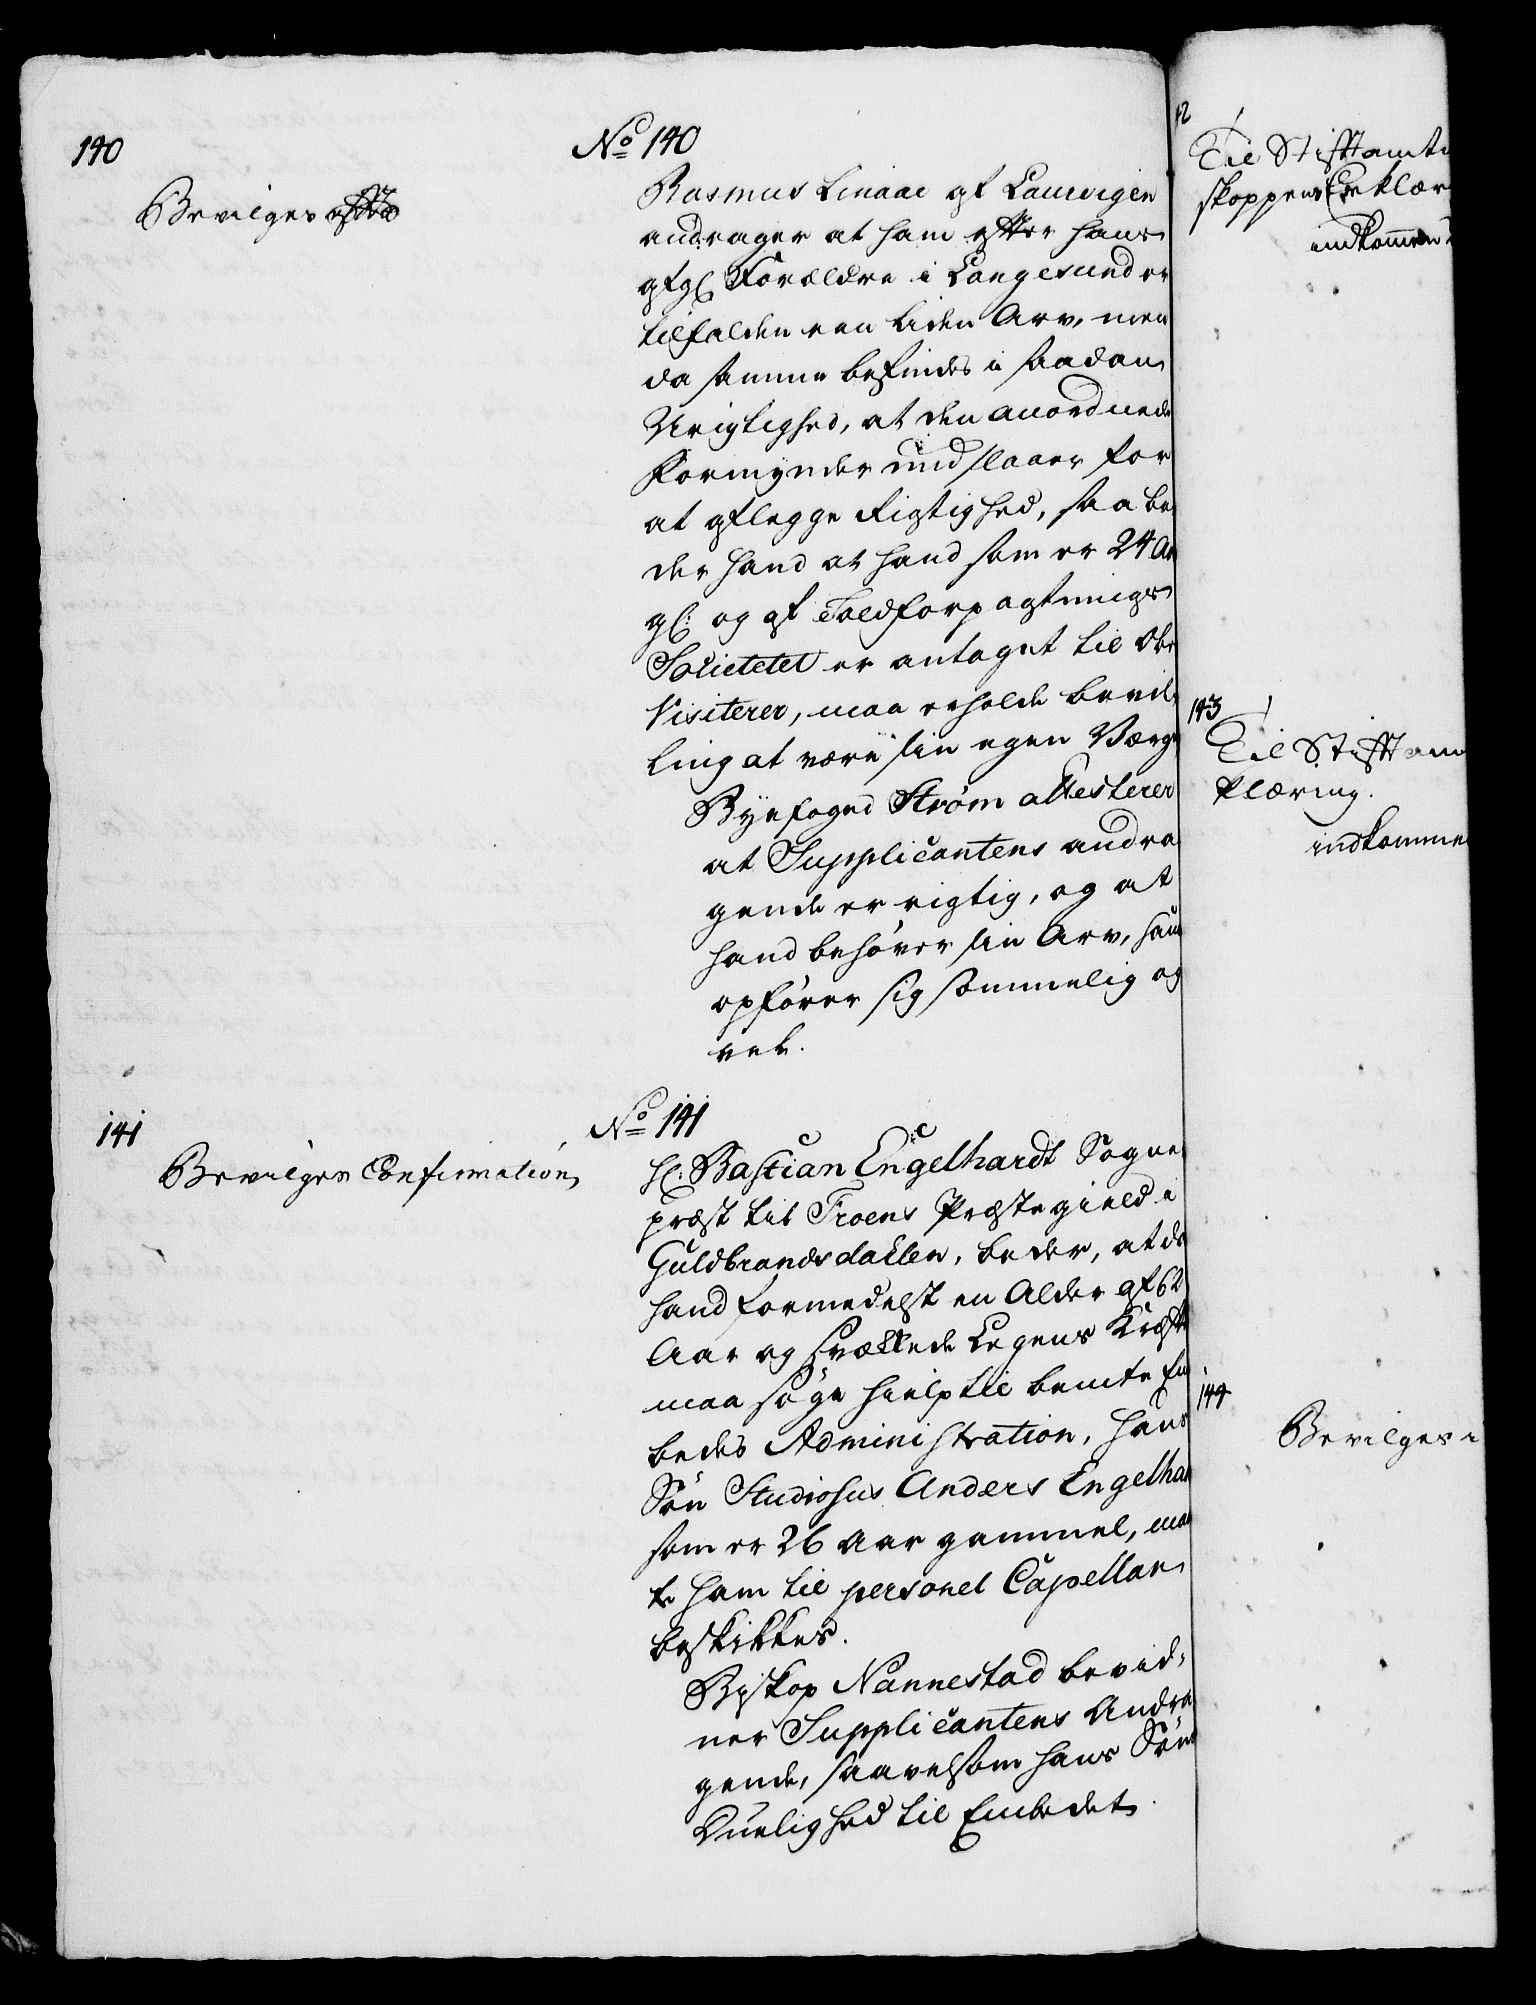 140
Bevilges
No 140
Rasmus Linaae af Laurvigen
andrager at ham efter hans
afg: Forældre i Langesund er
tilfalden een liden Arv, men
da samme befindes i saadan
Urigtighed, at den anordnede
Formynder undslaaer for
at aflegge Rigtighed, saa be
der hand at hand som er 24 Aar
gl: og af Toldforpagtnings
Societetet er antaget til Ober
Visiterer, maa erholde bevil
ling at være sin egen Værge
Byefoged Strøm attesterer
at Supplicantens andra
gende er rigtig, og at
hand behøver sin Arv, samt
opfører sig sømmelig og
vel.
141
Bevilges Confirmation
No 141
Hr: Bastian Engelhardt Sogne
præst til Froens Præstegield i
Guldbrandsdallen, beder, at da
hand formedelst en Alder af 62
Aar og svækkede Legems Kræfter
maa søge hielp til bemte Em
bedes Administration, hans
Søn Studiosus Anders Engelhar
som er 26 Aar gammel, maa
te ham til personel Capellan
beskikkes.
Biskop Nannestad bevid,
ner Supplicantens Andra
gende, saavelsom hans Søns
Duelighed til Embedet.
12
Til Stiftamt
skoppens Erklær
indkommen
143
Til Stiftam
klæring.
indkomme
144
Bevilges i